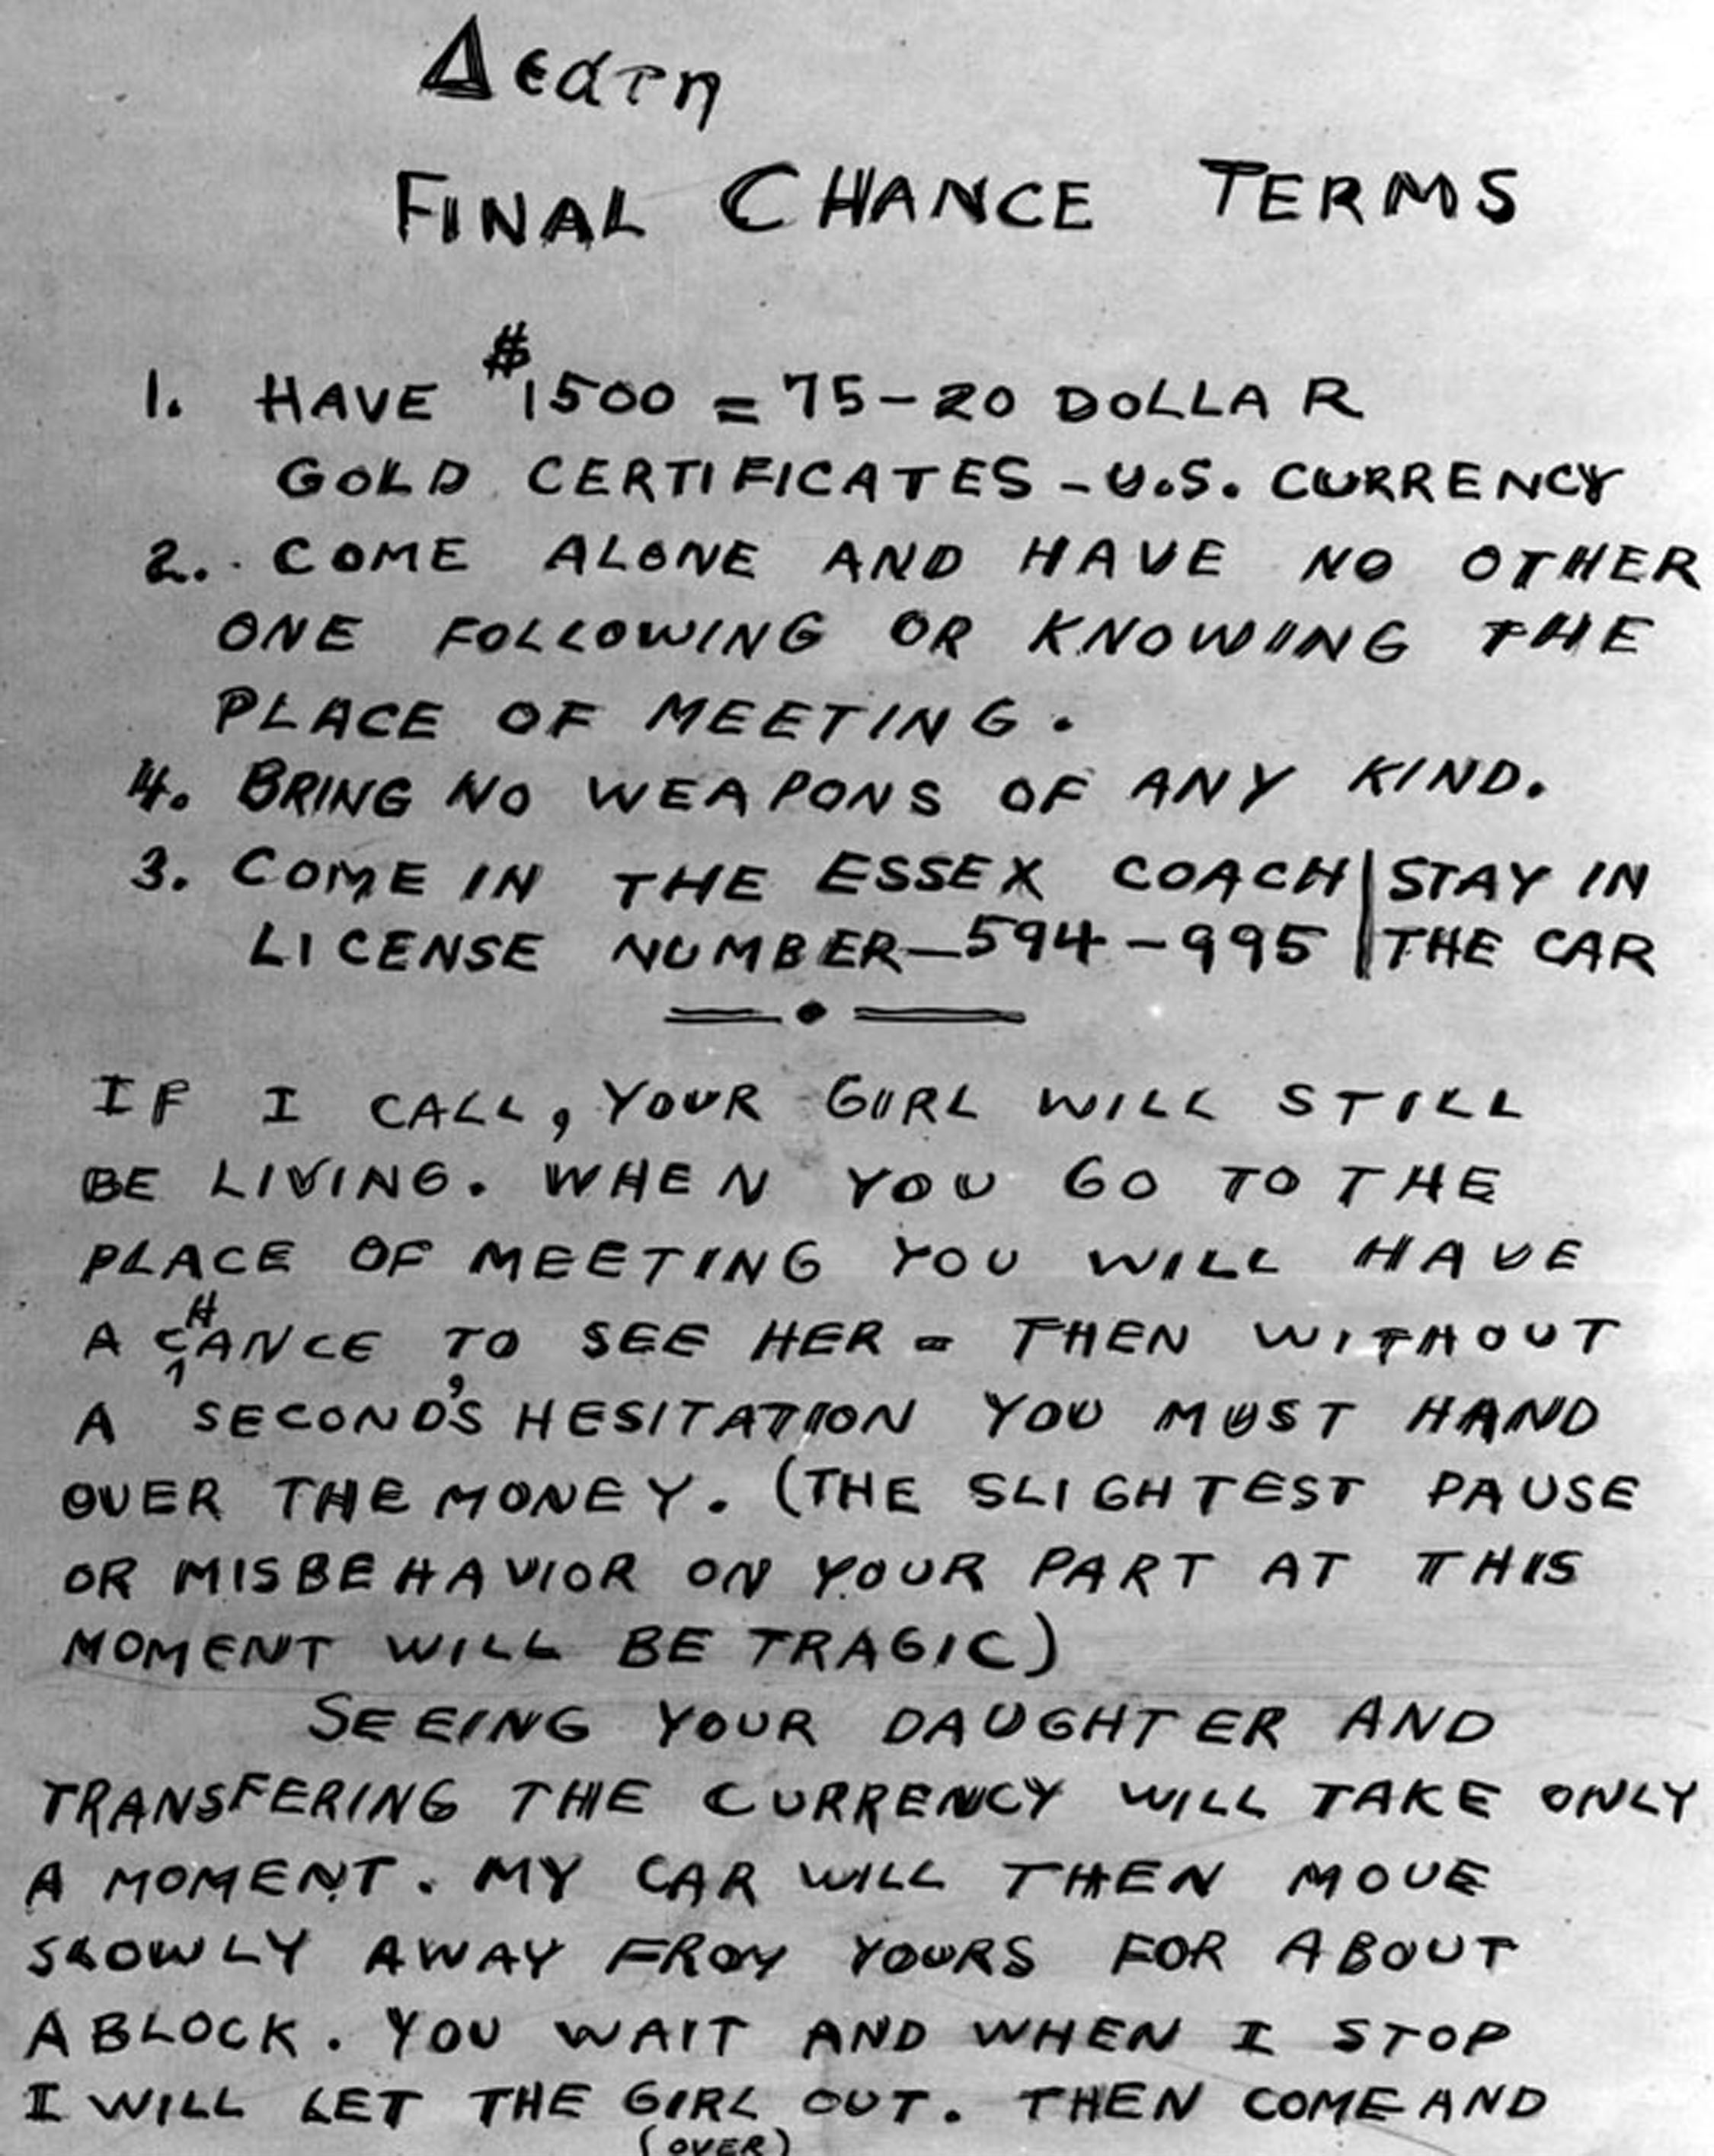 Δεατη
FINAL CHANCE TERMS
1. HAVE $1500 = 75-20 DOLLAR
GOLD CERTIFICATES - U.S. CURRENCY
2. COME ALONE AND HAVE NO OTHER
ONE FOLLOWING OR KNOWING THE
PLACE OF MEETING.
4. BRING NO WEAPONS OF ANY KIND.
3. COME IN THE ESSEX COACH | STAY IN
LICENSE NUMBER—594-995 | THE CAR
IF I CALL, YOUR GIRL WILL STILL
BE LIVING. WHEN YOU GO TO THE
PLACE OF MEETING YOU WILL HAVE
A CHANCE TO SEE HER - THEN WITHOUT
A SECOND'S HESITATION YOU MUST HAND
OVER THE MONEY. (THE SLIGHTEST PAUSE
OR MISBEHAVIOR ON YOUR PART AT THIS
MOMENT WILL BE TRAGIC)
SEEING YOUR DAUGHTER AND
TRANSFERING THE CURRENCY WILL TAKE ONLY
A MOMENT. MY CAR WILL THEN MOVE
SLOWLY AWAY FROM YOURS FOR ABOUT
A BLOCK. YOU WAIT AND WHEN I STOP
I WILL LET THE GIRL OUT. THEN COME AND
(OVER)